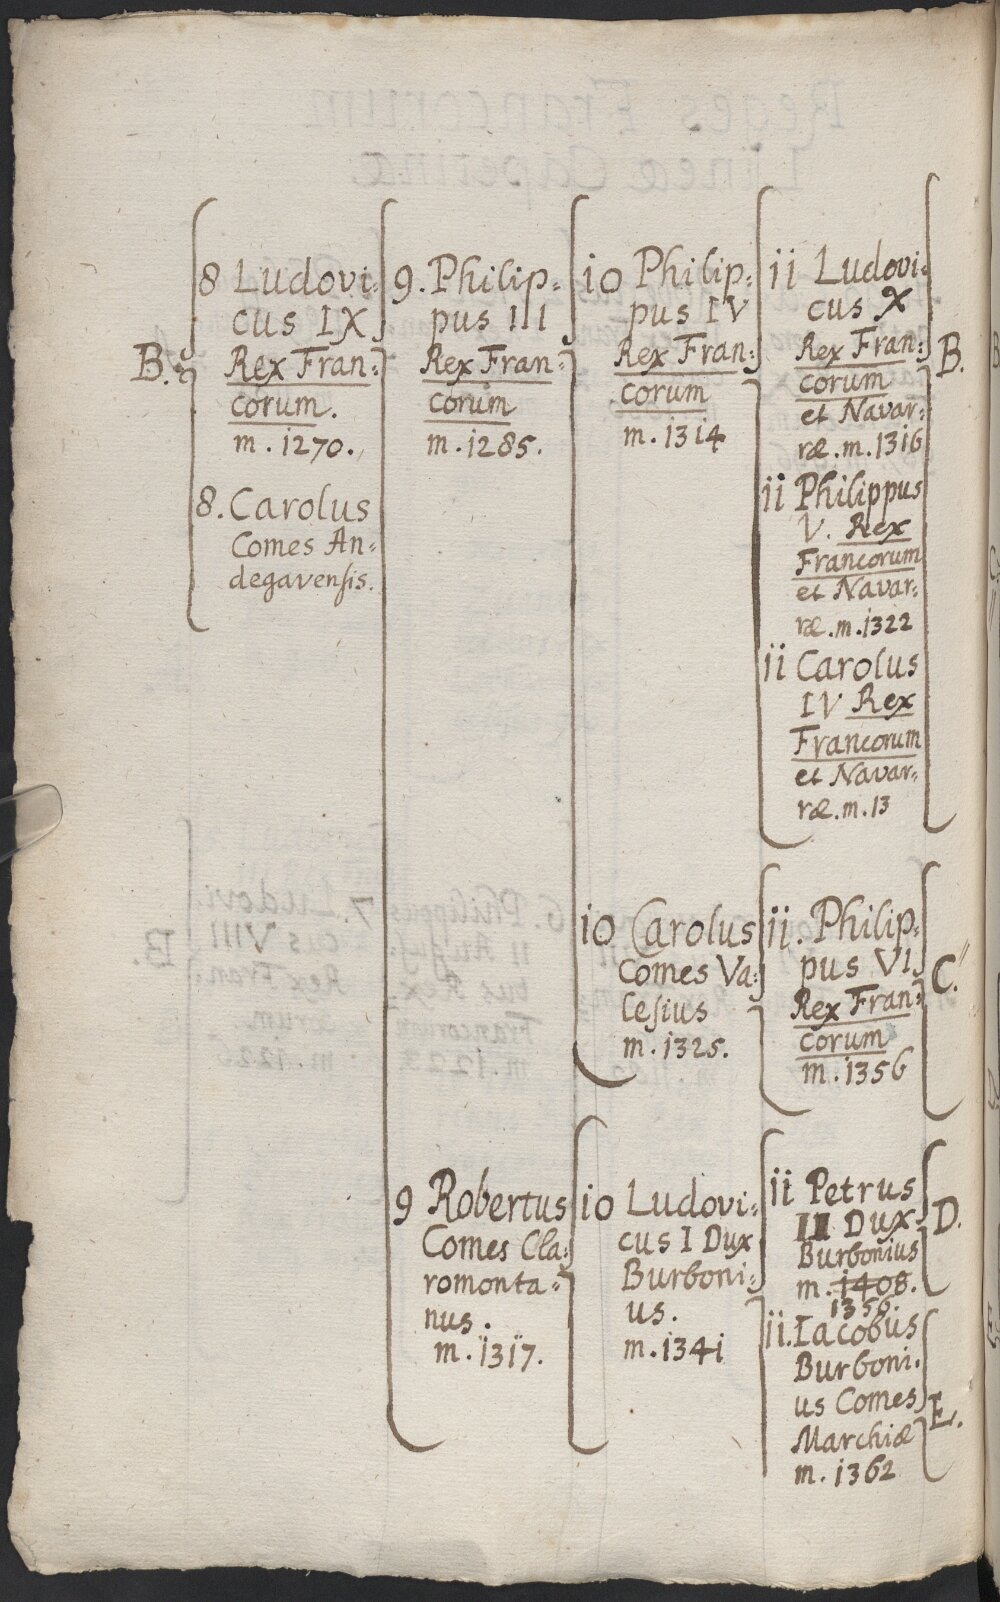 B.
8 Ludovi=
cus IX
Rex Fran=
corum.
m. 1270.
8. Carolus
Comes An=
degavensis.
9. Philip=
pus III
Rex Fran=
corum
m. 1285.
9 Robertus
Comes Cla=
romonta=
nus.
m. 1317.
10 Philip=
pus IV
Rex Fran=
corum
m. 1314
10 Carolus
Comes Va=
lesius
m. 1325.
10 Ludovi=
cus I Dux
Burboni=
us.
m. 1341
11 Ludovi=
cus X
Rex Fran=
corum
et Navar=
ræ. m. 1316
11 Philippus
V. Rex
Francorum
et Navar=
ræ. m. 1322
11 Carolus
IV Rex
Francorum
et Navar=
ræ. m. 13
B.
11. Philip=
pus VI.
Rex Fran=
corum
m. 1356
C.
11 Petrus
Dux
Burbonius
m. 1408.
1356.
D.
11. Iacobus
Burboni=
us Comes
Marchiæ
m. 1362
E.